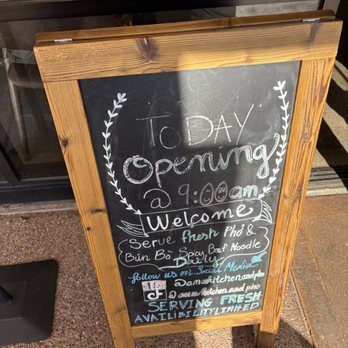 ToDAY
Opening
@ 9:00am
Welcome
Serve fresh Pho &
Bún Bò Spicy Beef Noodle
Daily
follow us on Social Media
@amakitchen.and.pho
SERVING FRESH
AVAILIBILITY LIMITED